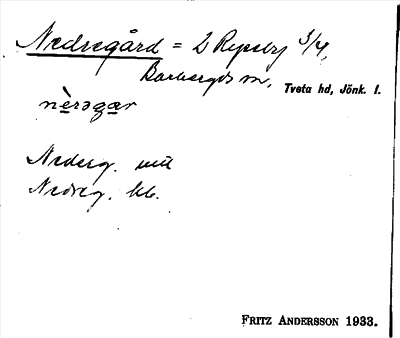 Nedregård = 2 Ryssby 3/4,
Barkeryds sn, Tveta hd, Jönk. l.
nèrəgær
Nederg. uttt
Nedreg. kb.
FRITZ ANDERSSON 1933.